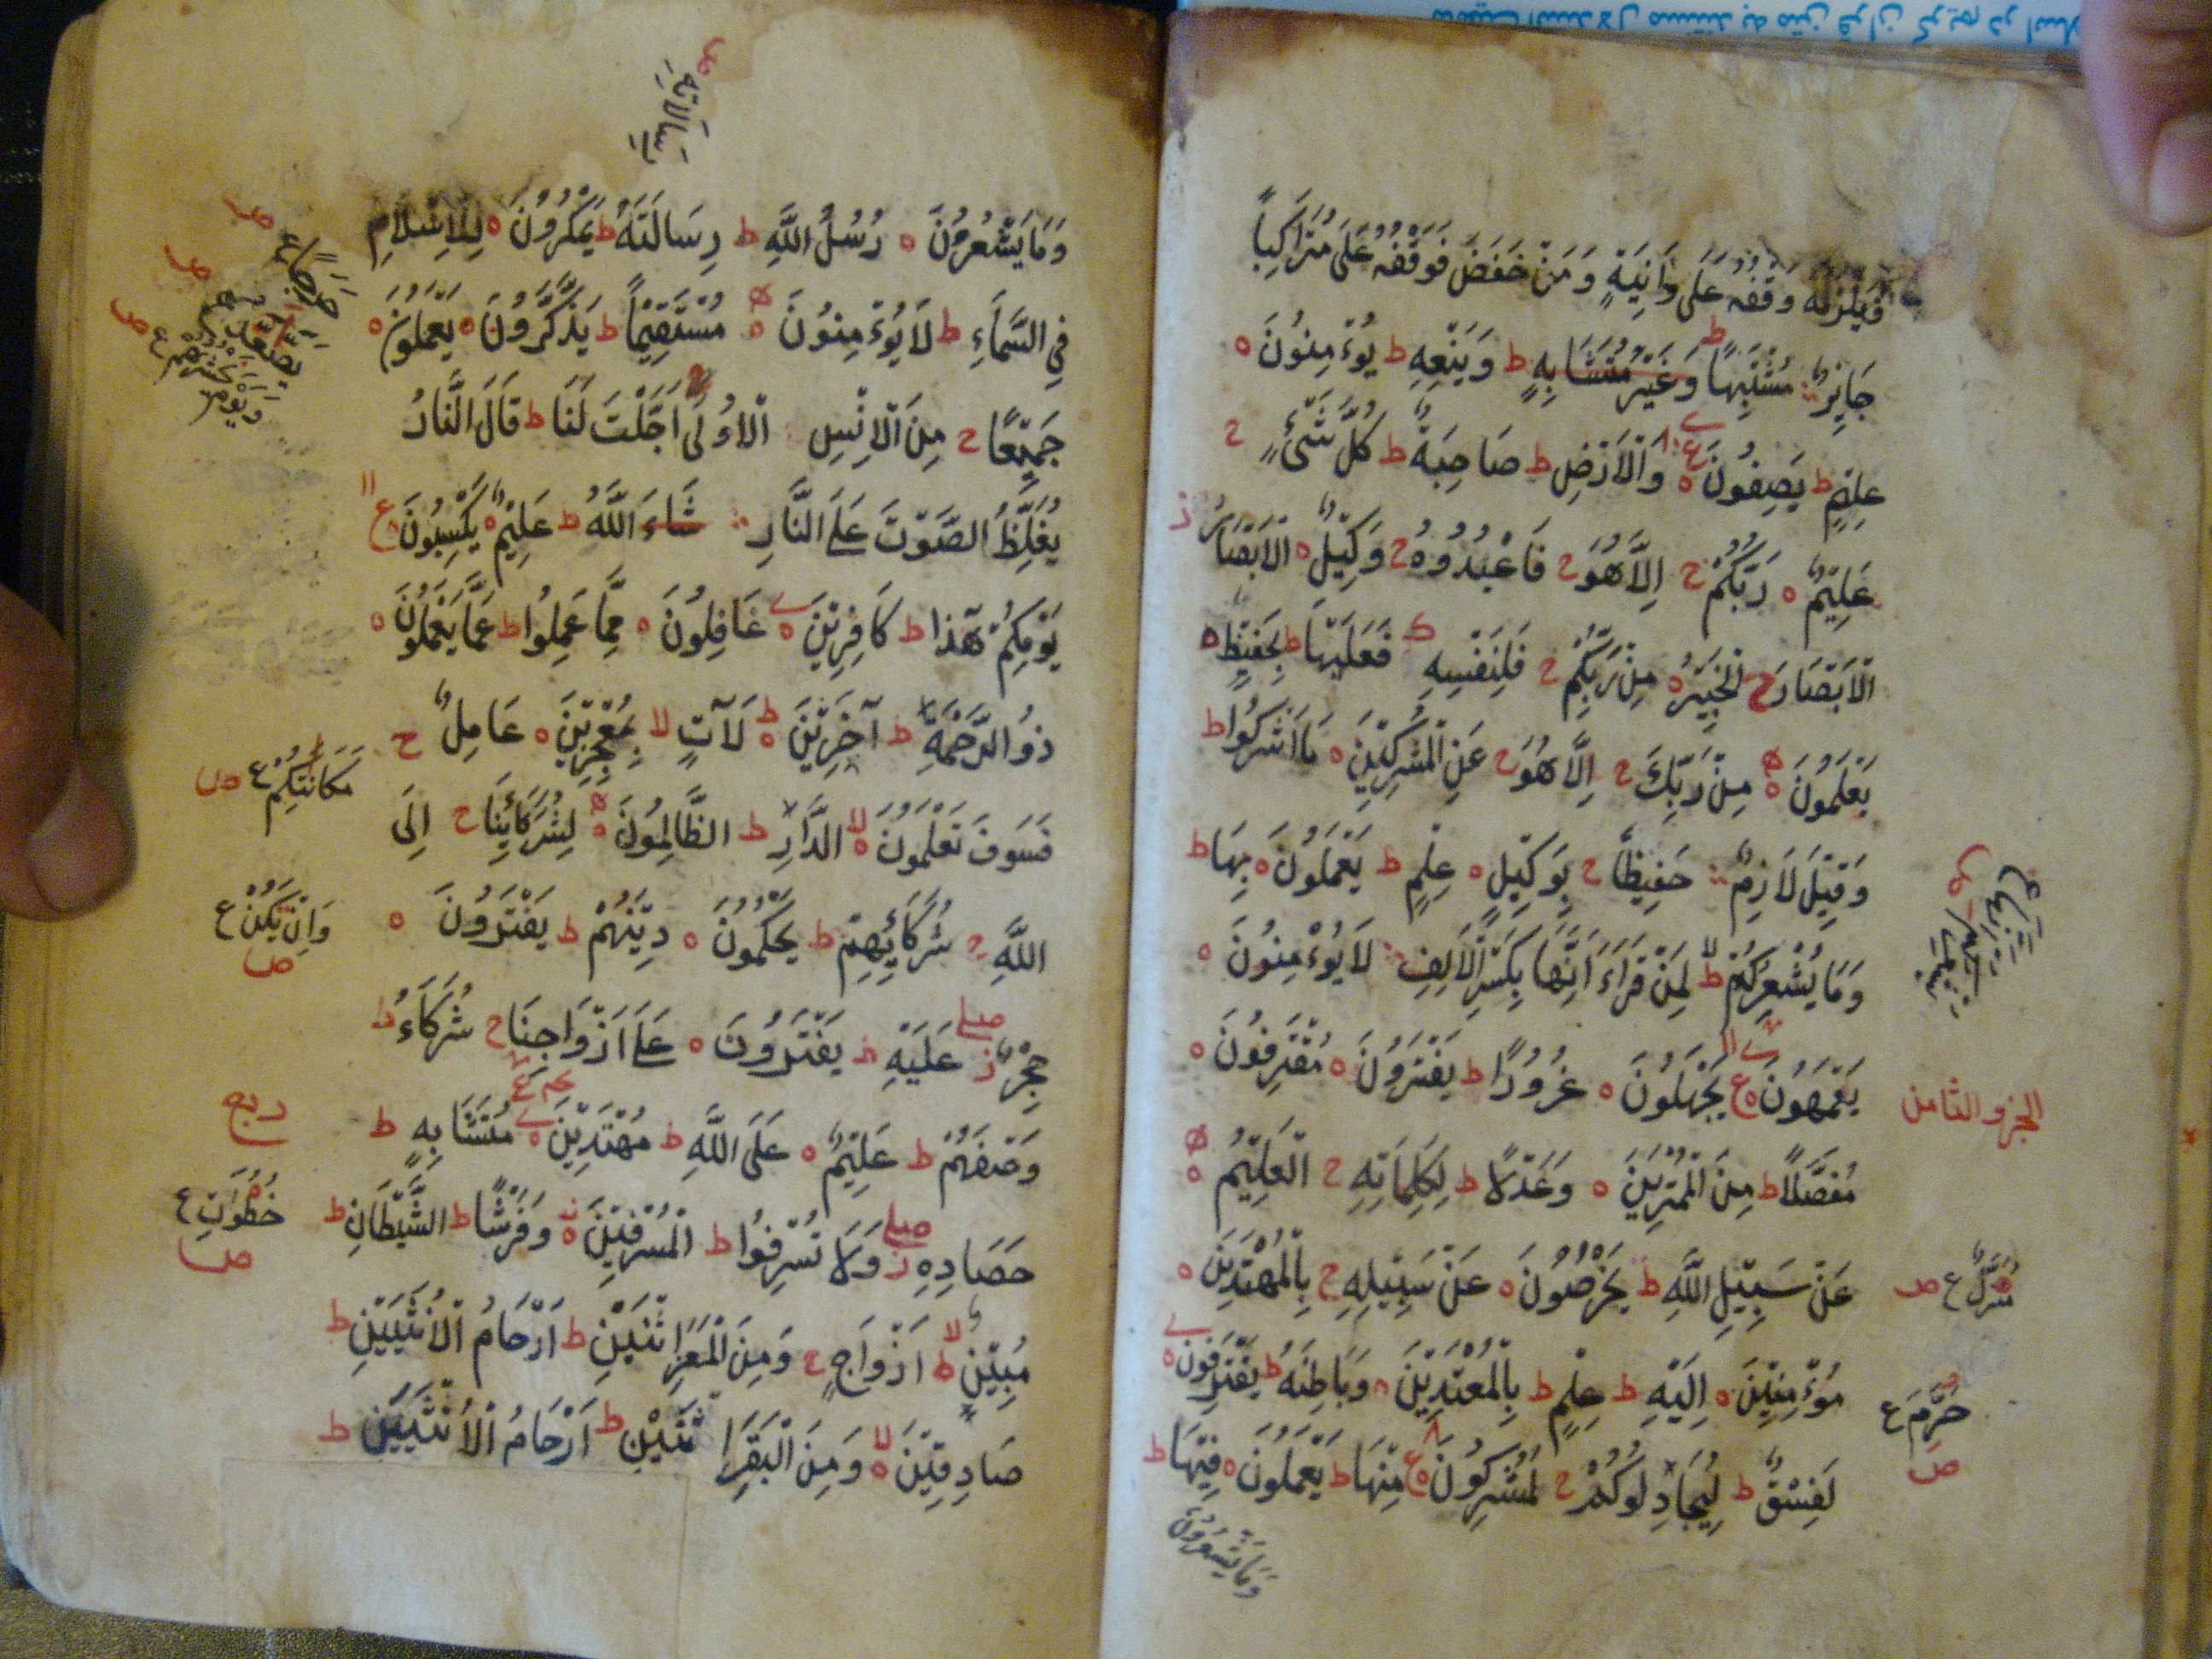 فَيَلْزَمُهُ وَقْفُهُ عَلَى دَانِيَةٍ وَمَنْ خَفَضَ فَوَقْفُهُ عَلَى مُتَرَاكِبًا
جَايِزٌ مُشْتَبِهًا ط وَغَيْرَ مُتَشَابِهٍ ط وَيَنْعِهِ ط يُؤْمِنُونَ ه
عِلْمٍ ط يَصِفُونَ ه ع وَالْأَرْضِ ط صَاحِبَةٌ ط كُلَّ شَيْءٍ ح
عَلِيمٌ ه رَبُّكُمْ ح إِلَّا هُوَ ح فَاعْبُدُوهُ ح وَكِيلٌ ه الْأَبْصَارُ ز
الْأَبْصَارَ ح الْخَبِيرُ ه مِنْ رَبِّكُمْ ح فَلِنَفْسِهِ فَعَلَيْهَا ط بِحَفِيظٍ ه
يَعْلَمُونَ ه مِنْ رَبِّكَ ح إِلَّا هُوَ ح عَنِ الْمُشْرِكِينَ ه مَا أَشْرَكُوا ط
وَقِيلَ لَازِمٌ حَفِيظًا ح بِوَكِيلٍ ه عِلْمٍ ط يَعْمَلُونَ ه بِهَا ط
وَمَا يُشْعِرُكُمْ ط لِمَنْ قَرَاءَ إِنَّهَا بِكَسْرِ الْأَلِفِ لَا يُؤْمِنُونَ ه
يَعْمَهُونَ ه ع يَجْهَلُونَ ه غُرُورًا ط يَفْتَرُونَ ه مُقْتَرِفُونَ ه
الجزو الثامن
مُفَصَّلًا ط مِنَ الْمُمْتَرِينَ ه وَعَدْلًا ط لِكَلِمَاتِهِ ح الْعَلِيمُ ه
عَنْ سَبِيلِ اللَّهِ ط يَخْرُصُونَ ه عَنْ سَبِيلِهِ ح بِالْمُهْتَدِينَ ه
مُؤْمِنِينَ ه إِلَيْهِ ط عِلْمٍ ط بِالْمُعْتَدِينَ ه وَبَاطِنَهُ ط يَقْتَرِفُونَ ه
حُرِّمَ ع ص
لَفِسْقٌ ط لِيُجَادِلُوكُمْ ح لَمُشْرِكُونَ ه ع مِنْهَا ط يَعْمَلُونَ ه فِيهَا ط
وَمَا يَشْعُرُونَ
رِسَالَاتِهِ ص
وَمَا يَشْعُرُونَ ه رُسُلُ اللَّهِ ط رِسَالَتَهُ ط يَمْكُرُونَ ه لِلْإِسْلَامِ
حَرِجًا ع ص
فِي السَّمَاءِ ط لَا يُؤْمِنُونَ ه مُسْتَقِيمًا ط يَذَّكَّرُونَ ه يَعْمَلُونَ ه
جَمِيعًا ح مِنَ الْإِنْسِ الْأُولَى أَجَّلْتَ لَنَا ط قَالَ النَّارُ
يُغَلِّظُ الصَّوْتَ عَلَى النَّارِ شَاءَ اللَّهُ ط عَلِيمٌ ه يَكْسِبُونَ ه ع
يَوْمِكُمْ هَذَا ط كَافِرِينَ ه غَافِلُونَ ه مِمَّا عَمِلُوا ط عَمَّا يَعْمَلُونَ ه
ذُو الرَّحْمَةِ ط آخَرِينَ ه ط لَآتٍ لا بِمُعْجِزِينَ ه عَامِلٌ ح
مَكَانَتِكُمْ ع ص
فَسَوْفَ تَعْلَمُونَ ه لا الدَّارِ ط الظَّالِمُونَ ه لِشُرَكَائِنَا ح إِلَى
وَإِنْ تَكُنْ ع ص
اللَّهِ ح شُرَكَائِهِمْ ط يَحْكُمُونَ ه دِينَهُمْ ط يَفْتَرُونَ ه
حِجْرٌ ز صلى عَلَيْهِ ط يَفْتَرُونَ ه عَلَى أَزْوَاجِنَا ح شُرَكَاءُ ط
ربع
وَصْفَهُمْ ط عَلِيمٌ ه عَلَى اللَّهِ ط مُهْتَدِينَ ه مُتَشَابِهٍ ط
خُطُوَاتِ ع ص
حَصَادِهِ ز صلى وَلَا تُسْرِفُوا ط الْمُسْرِفِينَ ه وَفَرْشًا ط الشَّيْطَانِ ط
مُبِينٌ ط لا أَزْوَاجٍ ح وَمِنَ الْمَعْزِ اثْنَيْنِ ط أَرْحَامُ الْأُنْثَيَيْنِ ط
صَادِقِينَ ه لا وَمِنَ الْبَقَرِ اثْنَيْنِ ط أَرْحَامُ الْأُنْثَيَيْنِ ط